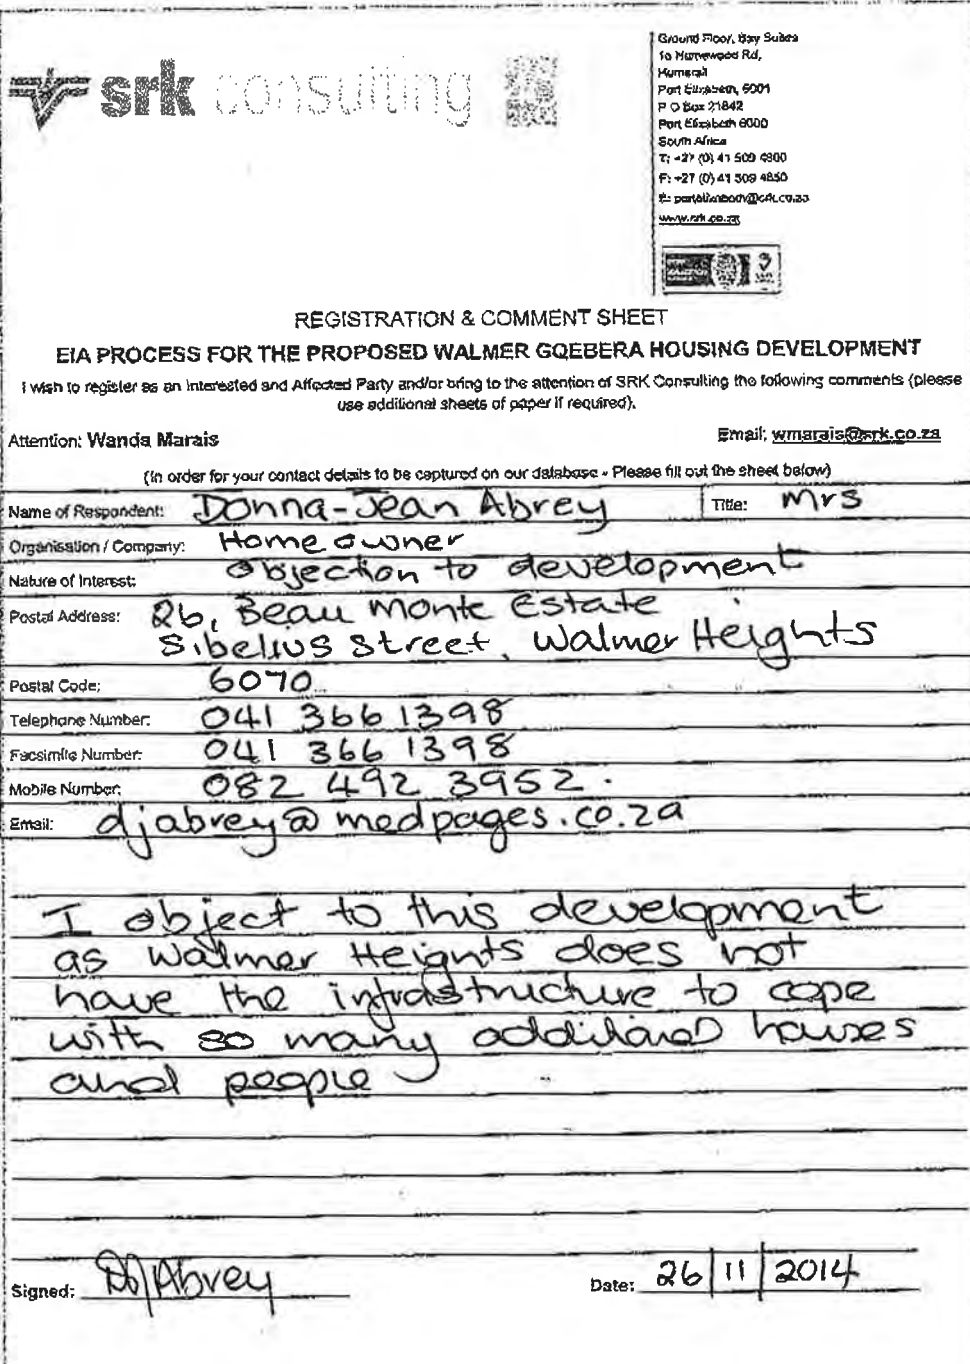 srk consulting
Ground Floor, Bay Suites
1a Humewood Rd,
Humerail
Port Elizabeth, 6001
P O Box 21842
Port Elizabeth 6000
South Africa
T: +27 (0) 41 509 4800
F: +27 (0) 41 509 4850
E: portelizabeth@srk.co.za
www.srk.co.za
REGISTRATION & COMMENT SHEET
EIA PROCESS FOR THE PROPOSED WALMER GQEBERA HOUSING DEVELOPMENT
I wish to register as an Interested and Affected Party and/or bring to the attention of SRK Consulting the following comments (please
use additional sheets of paper if required).
Attention: Wanda Marais Email: wmarais@srk.co.za
(In order for your contact details to be captured on our database - Please fill out the sheet below)
Name of Respondent: Donna-Jean Abrey Title: Mrs
Organisation / Company: Home owner
Nature of Interest: Objection to development
Postal Address: 26, Beau Monte Estate
Sibelius Street, Walmer Heights
Postal Code: 6070
Telephone Number: 041 366 1398
Facsimile Number: 041 366 1398
Mobile Number: 082 492 3952.
Email: djabrey@medpages.co.za
I object to this development
as Walmer Heights does not
have the infrastructure to cope
with so many additional houses
and people
Signed: DJAbrey Date: 26 | 11 | 2014